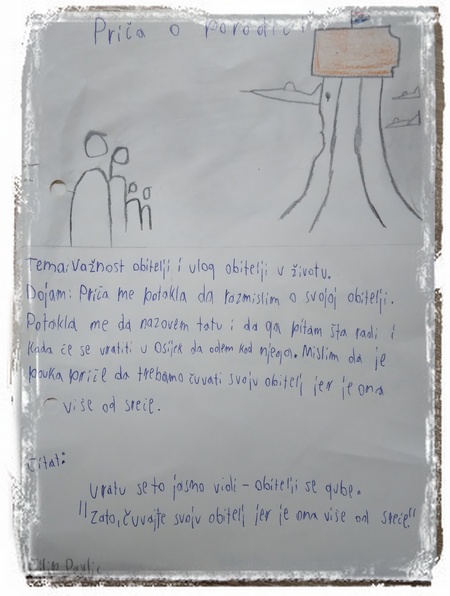 Priča o porodici
Tema: Važnost obitelji i ulog obitelji u životu.
Dojam: Priča me potakla da razmislim o svojoj obitelji.
Potakla me da nazovem tatu i da ga pitam šta radi i
kada će se vratiti u Osijek da odem kod njega. Mislim da je
pouka priče da trebamo čuvati svoju obitelj jer je ona
više od sreće.
Citat:
U ratu se to jasno vidi - obitelji se gube.
"Zato, čuvajte svoju obitelj jer je ona više od sreće!"